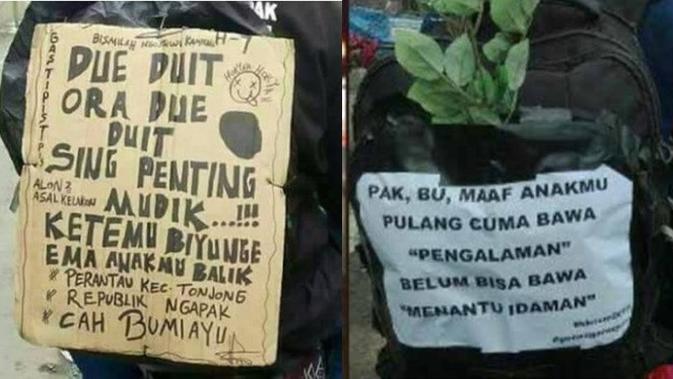 BISMILAH NGO
H-7
GASTIPISTPIS
DUE DUIT
ORA DUE
DUIT
SING PENTING
ALON2
ASAL KELAKON
MUDIK...!!!
KETEMU BIYUNGE
EMA ANAKMU BALIK
# PERANTAU KEC. TONJONG
# REPUBLIK NGAPAK
# CAH BUMIAYU
PAK, BU, MAAF ANAKMU
PULANG CUMA BAWA
"PENGALAMAN"
BELUM BISA BAWA
"MENANTU IDAMAN"